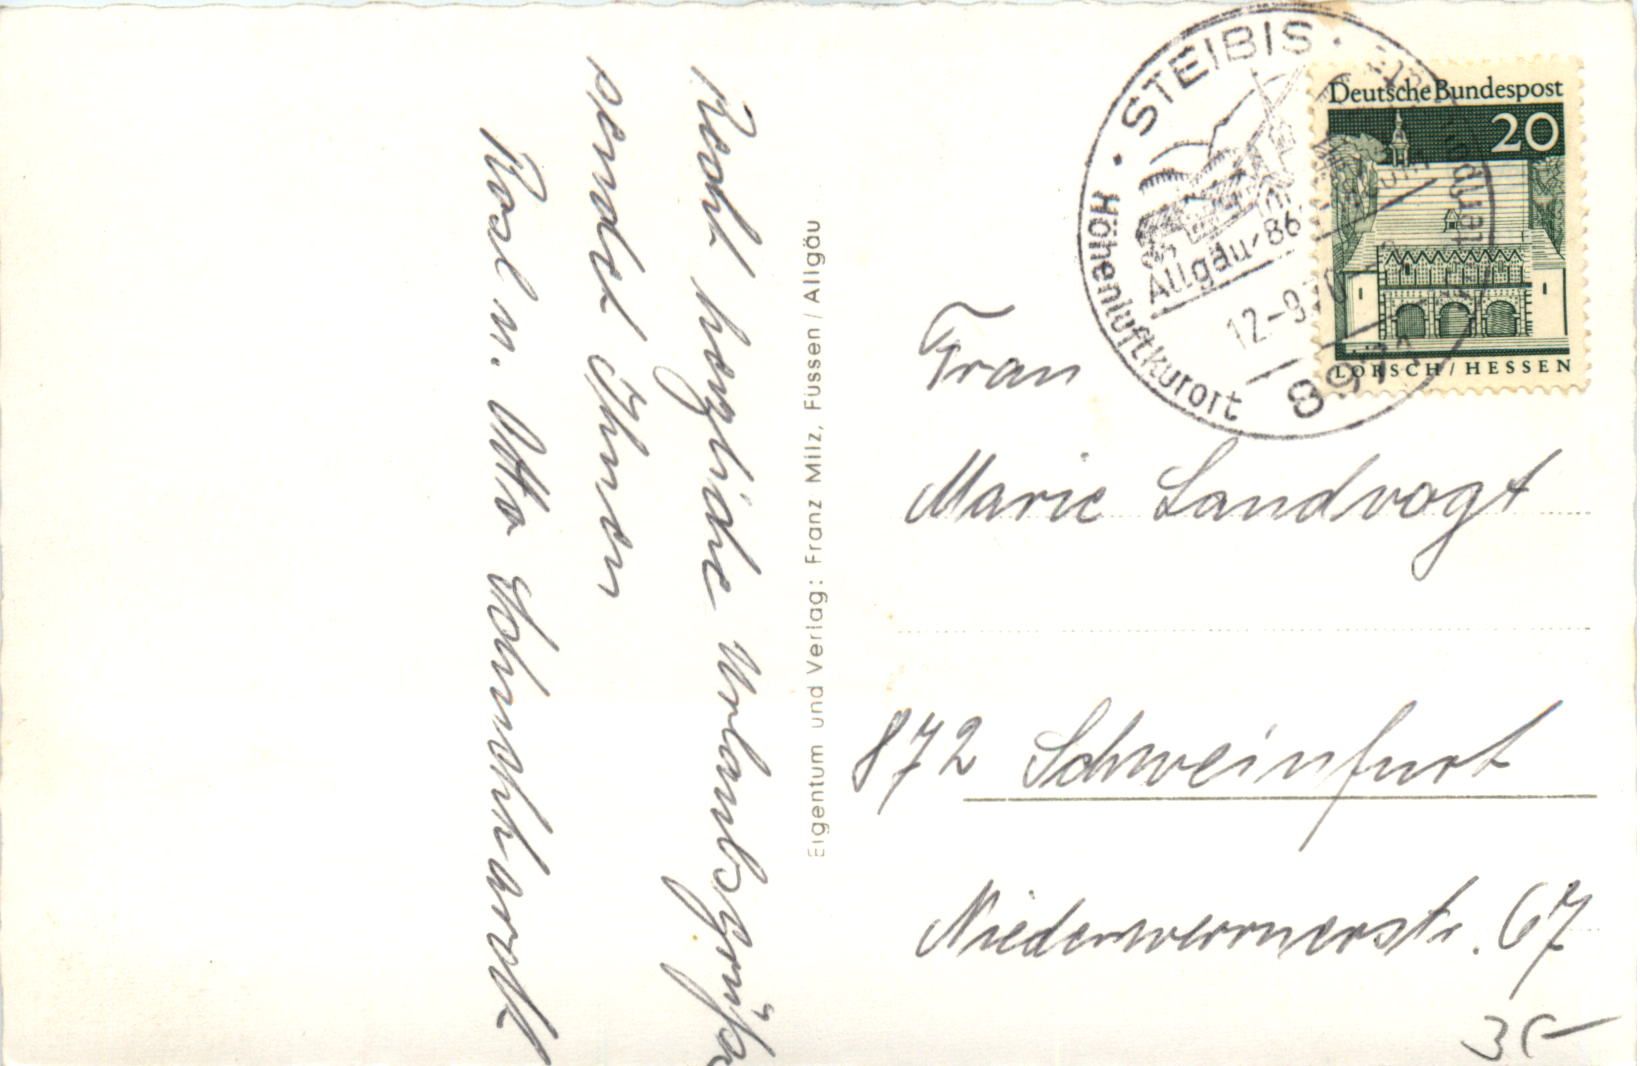 Recht herzliche Urlaubsgrüße
sendet Ihnen
Rosl u. Otto
Eigentum und Verlag: Franz Milz, Füssen / Allgäu
STEIBIS
Höhenluftkurort
Allgäu 86
12-9.70
8971
Deutsche Bundespost
20
LORSCH/HESSEN
Frau
Marie Landvogt
872 Schweinfurt
Niederwerrnerstr. 67
35-